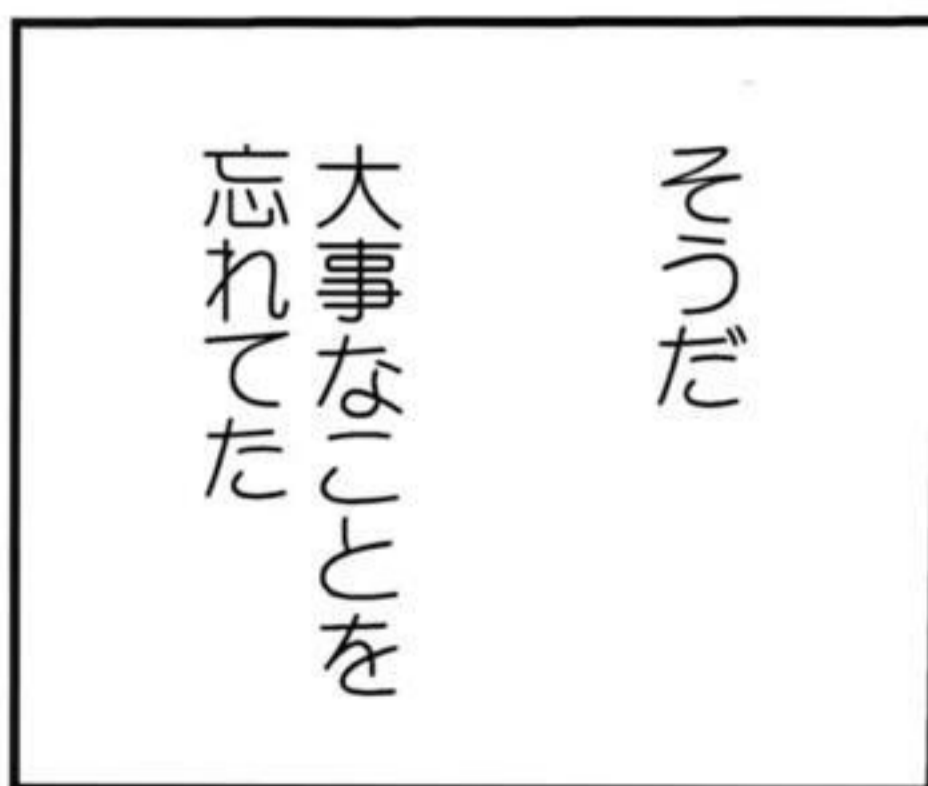 そうだ
大事なことを
忘れてた